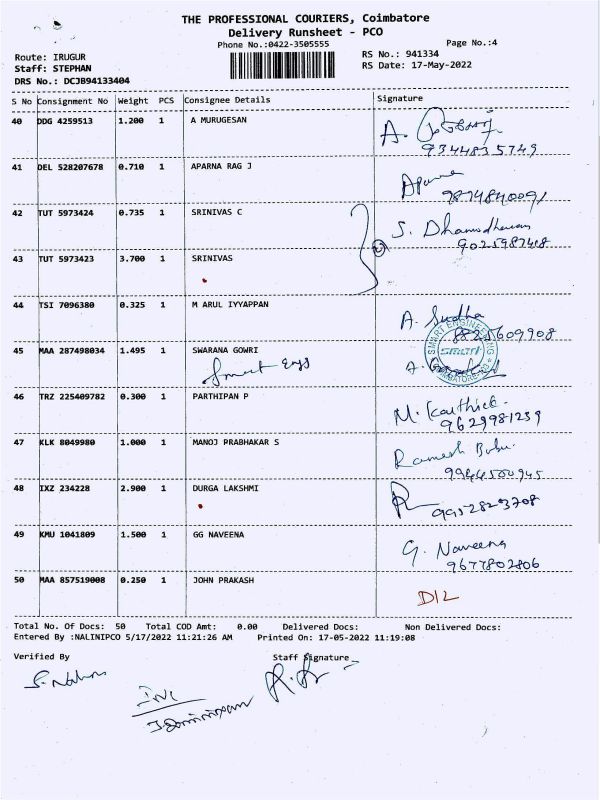 THE PROFESSIONAL COURIERS, Coimbatore
Delivery Runsheet - PCO
Phone No.:0422-3505555
Page No.:4
Route: IRUGUR
RS No.: 941334
Staff: STEPHAN
RS Date: 17-May-2022
DRS No.: DCJB94133404
S No Consignment No Weight PCS Consignee Details Signature
40 DDG 4259513 1.200 1 A MURUGESAN A.
9344835749
41 DEL 528207678 0.710 1 APARNA RAG J Aparna
9894840091
42 TUT 5973424 0.735 1 SRINIVAS C S. Dhamodharan
9025987418
43 TUT 5973423 3.700 1 SRINIVAS
44 TSI 7096380 0.325 1 M ARUL IYYAPPAN A. Sudha
8825609908
SMART ENGINEERING
smart
COIMBATORE
45 MAA 287498034 1.495 1 SWARANA GOWRI A.
Smart Engg
46 TRZ 225409782 0.300 1 PARTHIPAN P M. Karthick.
9629981239
47 KLK 8049980 1.000 1 MANOJ PRABHAKAR S Ramesh Babu.
9944500945
48 IXZ 234228 2.900 1 DURGA LAKSHMI
9952823708
49 KMU 1041809 1.500 1 GG NAVEENA G. Naveena
9677802806
50 MAA 857519008 0.250 1 JOHN PRAKASH D/L
Total No. Of Docs: 50 Total COD Amt: 0.00 Delivered Docs: Non Delivered Docs:
Entered By :NALINIPCO 5/17/2022 11:21:26 AM Printed On: 17-05-2022 11:19:08
Verified By Staff Signature